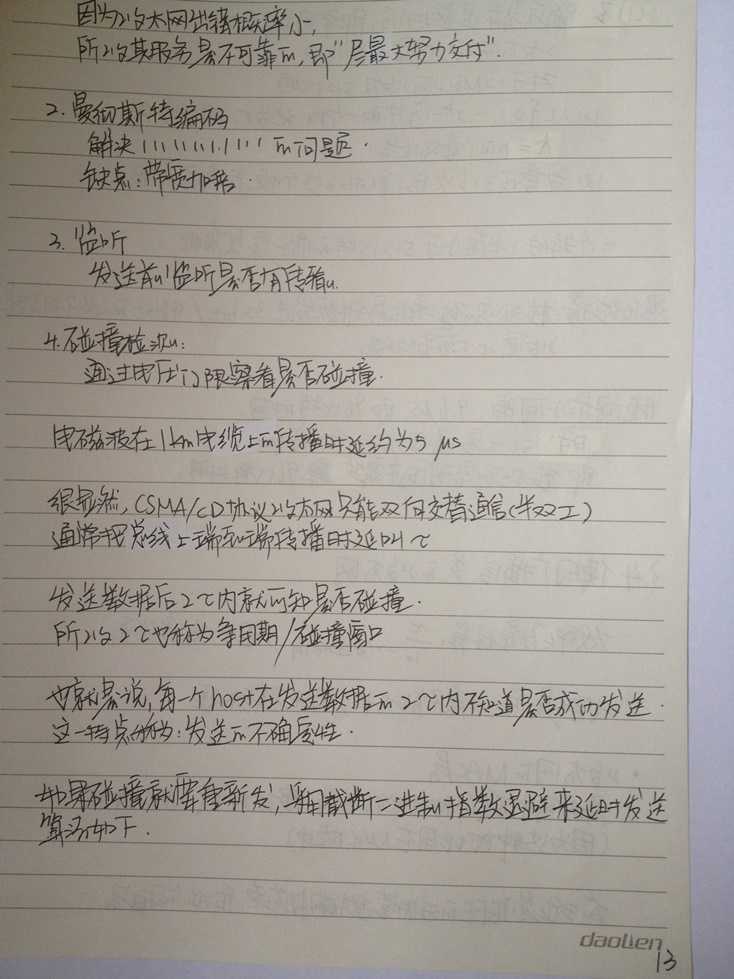 因为以太网出错概率小,
所以其服务是不可靠的,即"尽最大努力交付".
2.曼彻斯特编码
解决1111111.1111的问题.
缺点:带宽加倍.
3.监听
发送前监听是否有传输.
4.碰撞检测:
通过电压门限察看是否碰撞.
电磁波在1km电缆上的传播时延约为5μs
很显然,CSMA/CD协议以太网只能双向交替通信(半双工)
通常把总线上端到端传播时延叫τ
发送数据后2τ内就可知是否碰撞.
所以2τ也称为争用期/碰撞窗口
也就是说,每一个host在发送数据的2τ内不知道是否成功发送.
这一特点称为:发送的不确定性.
如果碰撞就要重新发,采用截断二进制指数退避来延时发送
算法如下.
daolien
13